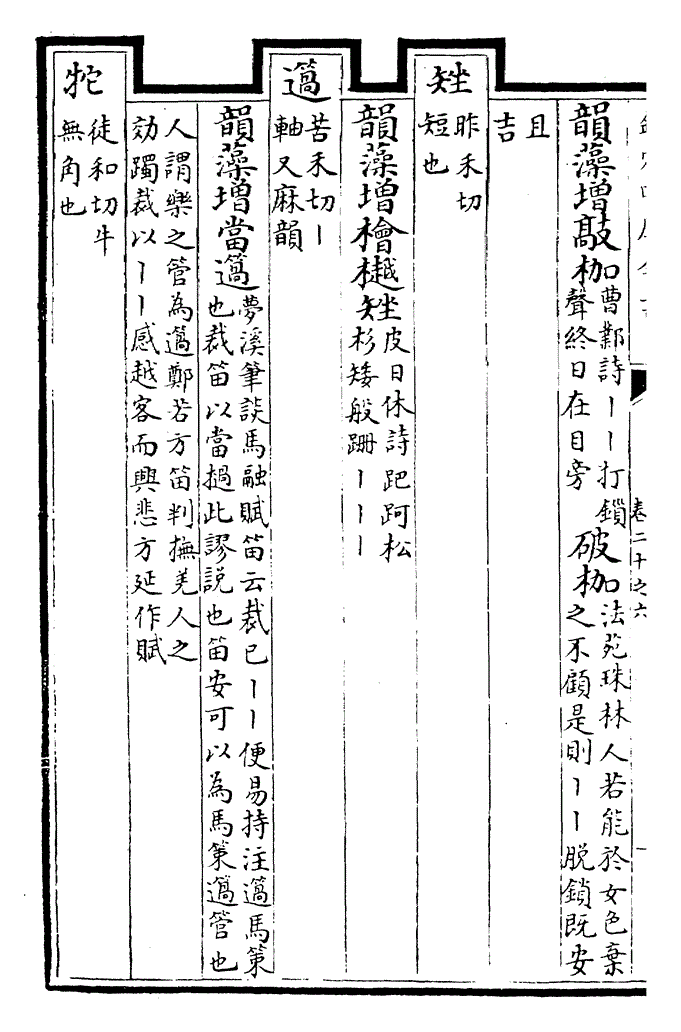 卷二十之六
韻藻增敲枷曹鄴詩丨丨打鎖
聲終日在目旁
破枷法苑珠林人若能於女色棄
之不顧是則丨丨脱鎖既安
且
吉
矬昨禾切
短也
韻藻增檜樾矬皮日休詩跁跒松
杉矮般跚丨丨丨
薖苦禾切丨
軸又麻韻
韻藻增當薖夢溪筆談馬融賦笛云裁已丨丨便易持注薖馬策
也裁笛以當撾此謬説也笛安可以為馬策薖管也
人謂樂之管為薖鄭若方笛判撫羌人之
効躅裁以丨丨感越客而興悲方延作賦
牤徒和切牛
無角也